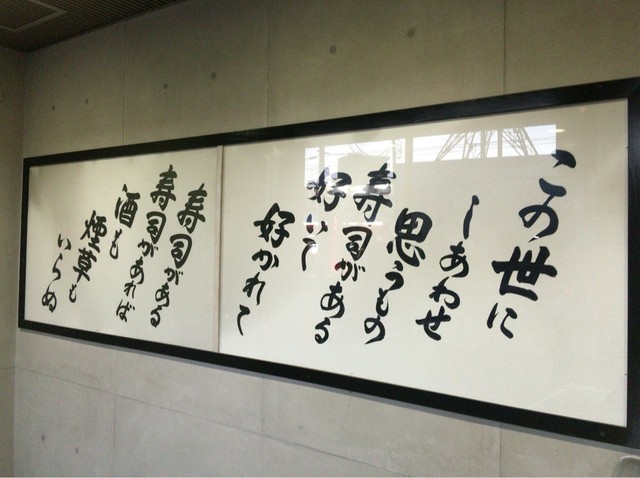 この世に
しあわせ
思うもの
寿司がある
好いて
好かれて
寿司がある
寿司があれば
酒も
煙草も
いらぬ